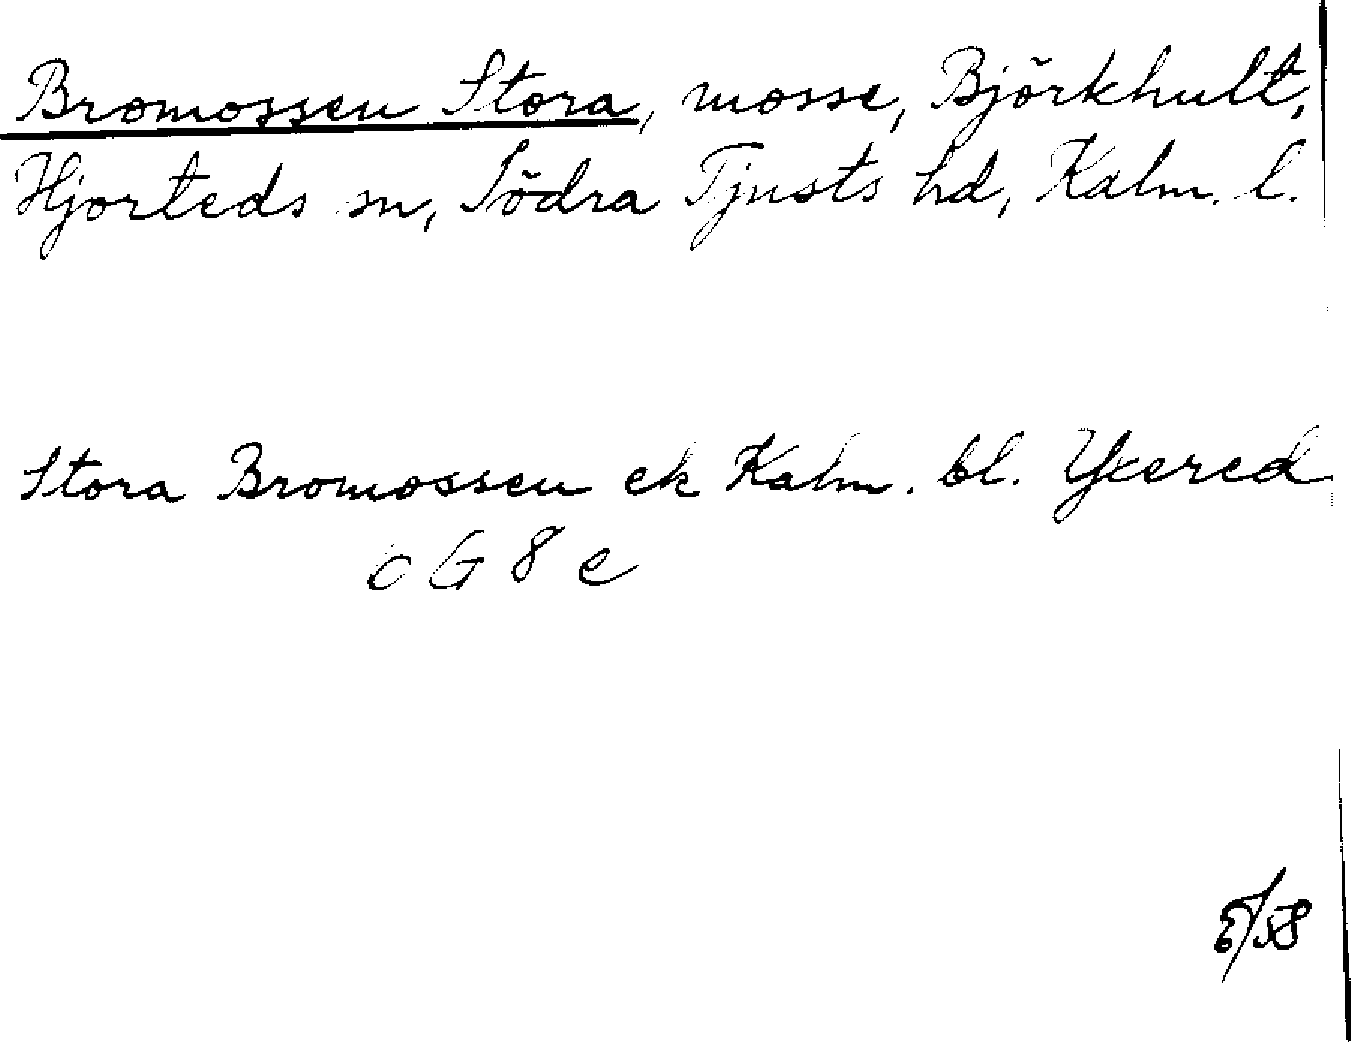 Bromossen Stora, mosse, Björkhult,
Hjorteds sn, Södra Tjusts hd, Kalm. l.
Stora Bromossen ek Kalm. bl. Yxered
c G 8 e
E/58